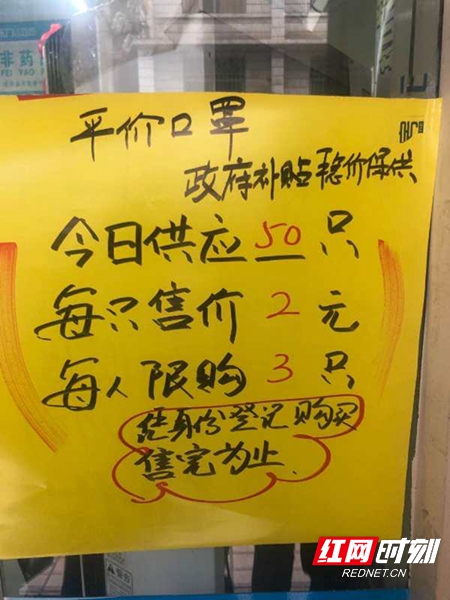 非药
FEI YAO
平价口罩
政府补贴稳价保供
今日供应50只
每只售价2元
每人限购3只
凭身份登记购买
售完为止
红网时刻
REDNET.CN